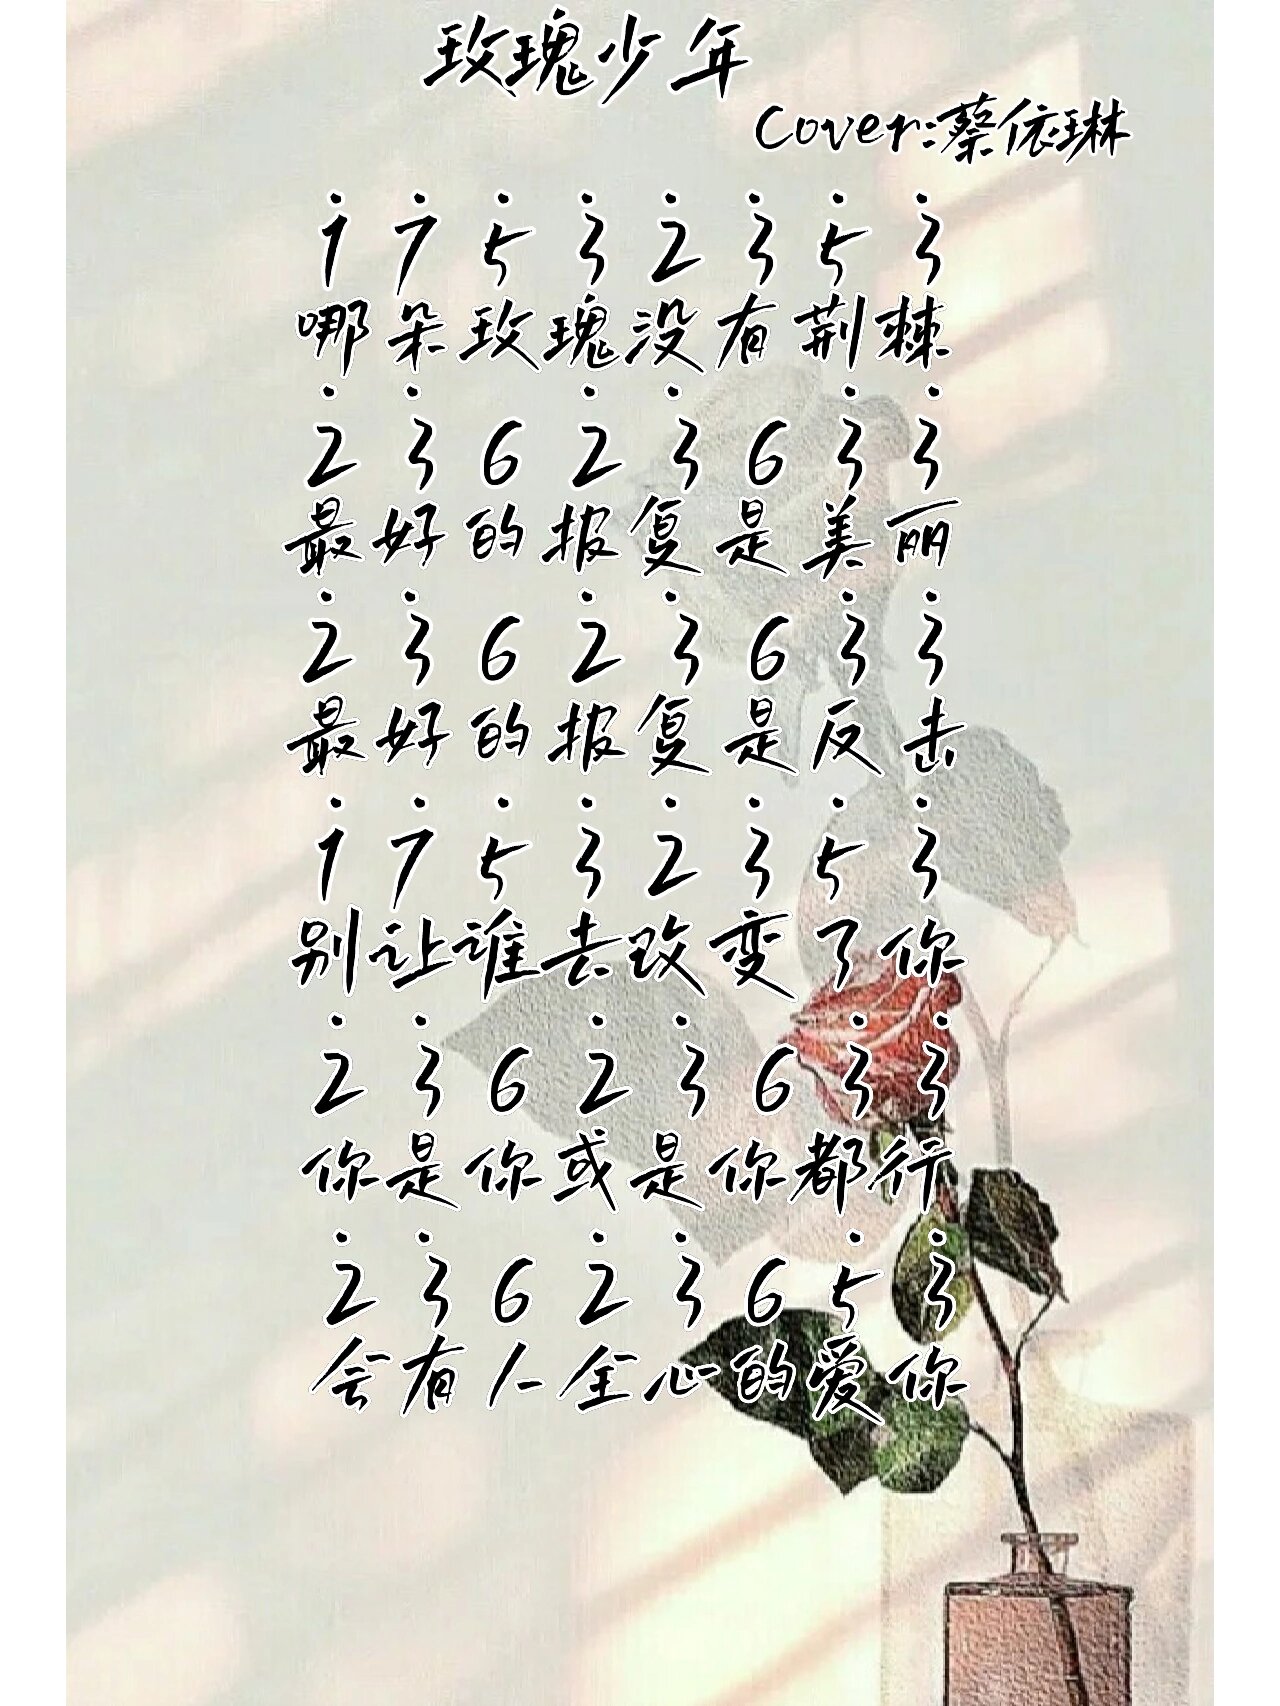 玫瑰少年
Cover:蔡依琳
1̇ 7̇ 5̇ 3̇ 2̇ 3̇ 5̇ 3̇
哪朵玫瑰没有荆棘
2̇ 3̇ 6 2̇ 3̇ 6 3̇ 3̇
最好的报复是美丽
2̇ 3̇ 6 2̇ 3̇ 6 3̇ 3̇
最好的报复是反击
1̇ 7̇ 5̇ 3̇ 2̇ 3̇ 5̇ 3̇
别让谁去改变了你
2̇ 3̇ 6 2̇ 3̇ 6 3̇ 3̇
你是你或是你都行
2̇ 3̇ 6 2̇ 3̇ 6 5̇ 3̇
会有人全心的爱你